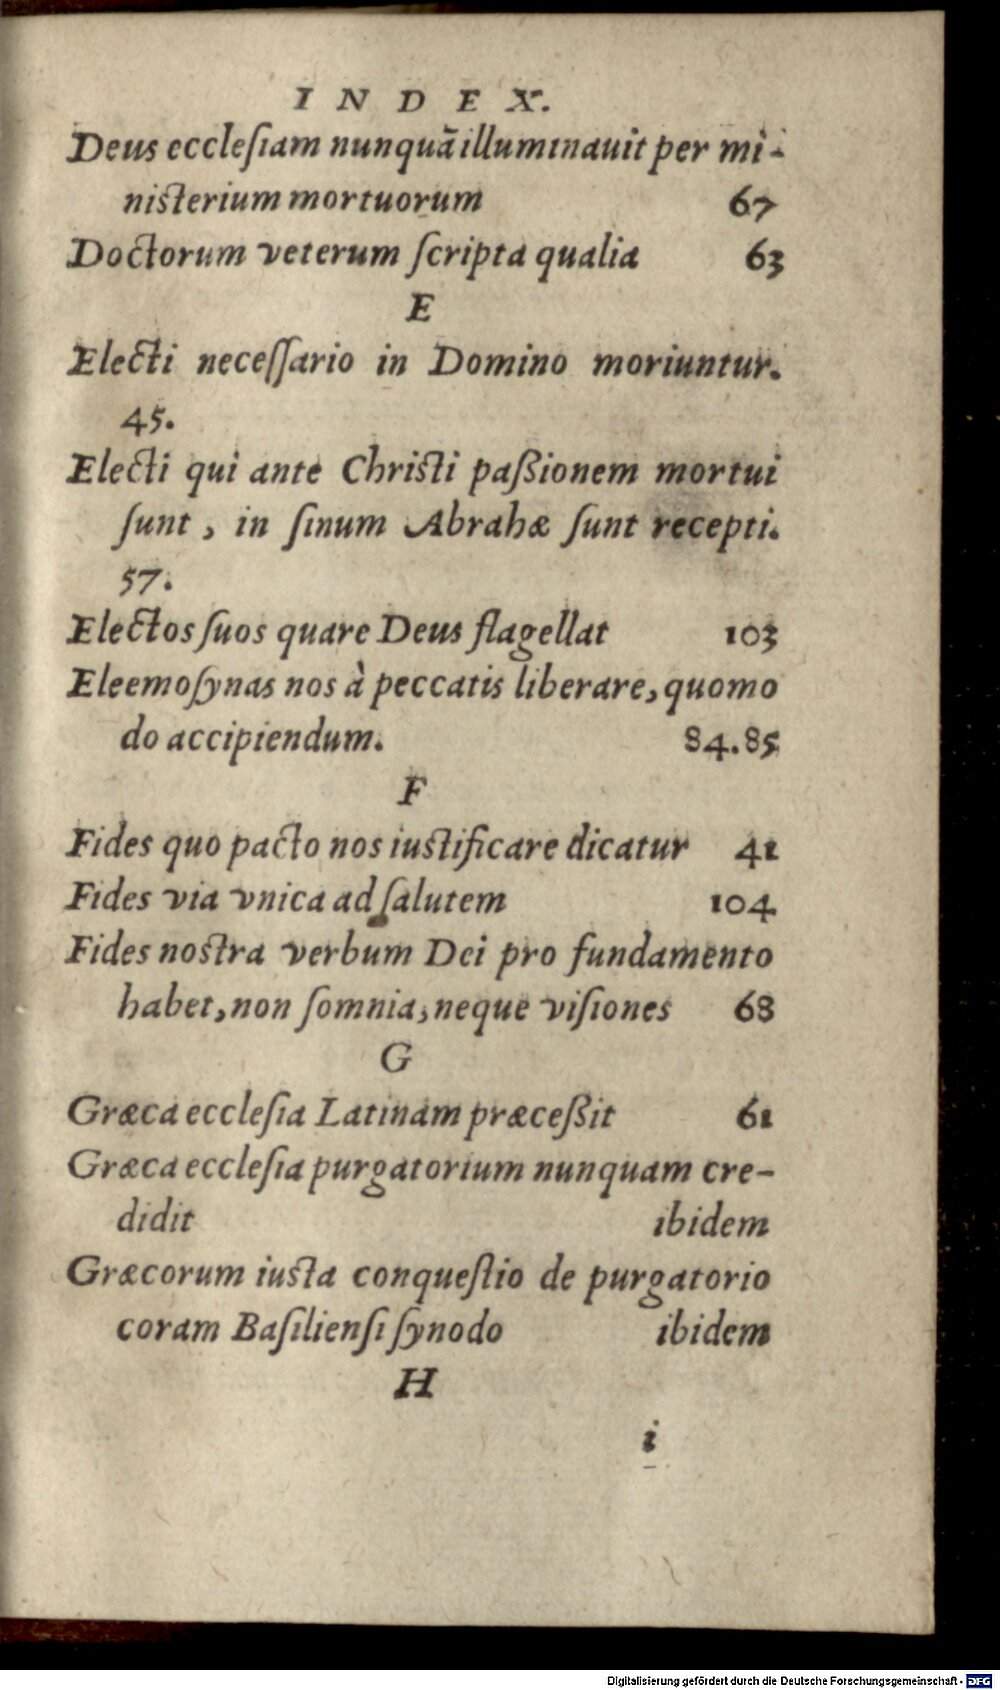 INDEX.
Deus eccleſiam nunquã illuminauit per mi-
niſterium mortuorum 67
Doctorum veterum ſcripta qualia 63
E
Electi neceſſario in Domino moriuntur.
45.
Electi qui ante Chriſti paßionem mortui
ſunt, in ſinum Abrahæ ſunt recepti.
57.
Electos ſuos quare Deus flagellat 103
Eleemoſynas nos à peccatis liberare, quomo
do accipiendum. 84.85
F
Fides quo pacto nos iuſtificare dicatur 41
Fides via vnica ad ſalutem 104
Fides noſtra verbum Dei pro fundamento
habet, non ſomnia, neque viſiones 68
G
Græca eccleſia Latinam præceßit 61
Græca eccleſia purgatorium nunquam cre-
didit ibidem
Græcorum iuſta conqueſtio de purgatorio
coram Baſilienſi ſynodo ibidem
H
i
Digitalisierung gefördert durch die Deutsche Forschungsgemeinschaft - DFG